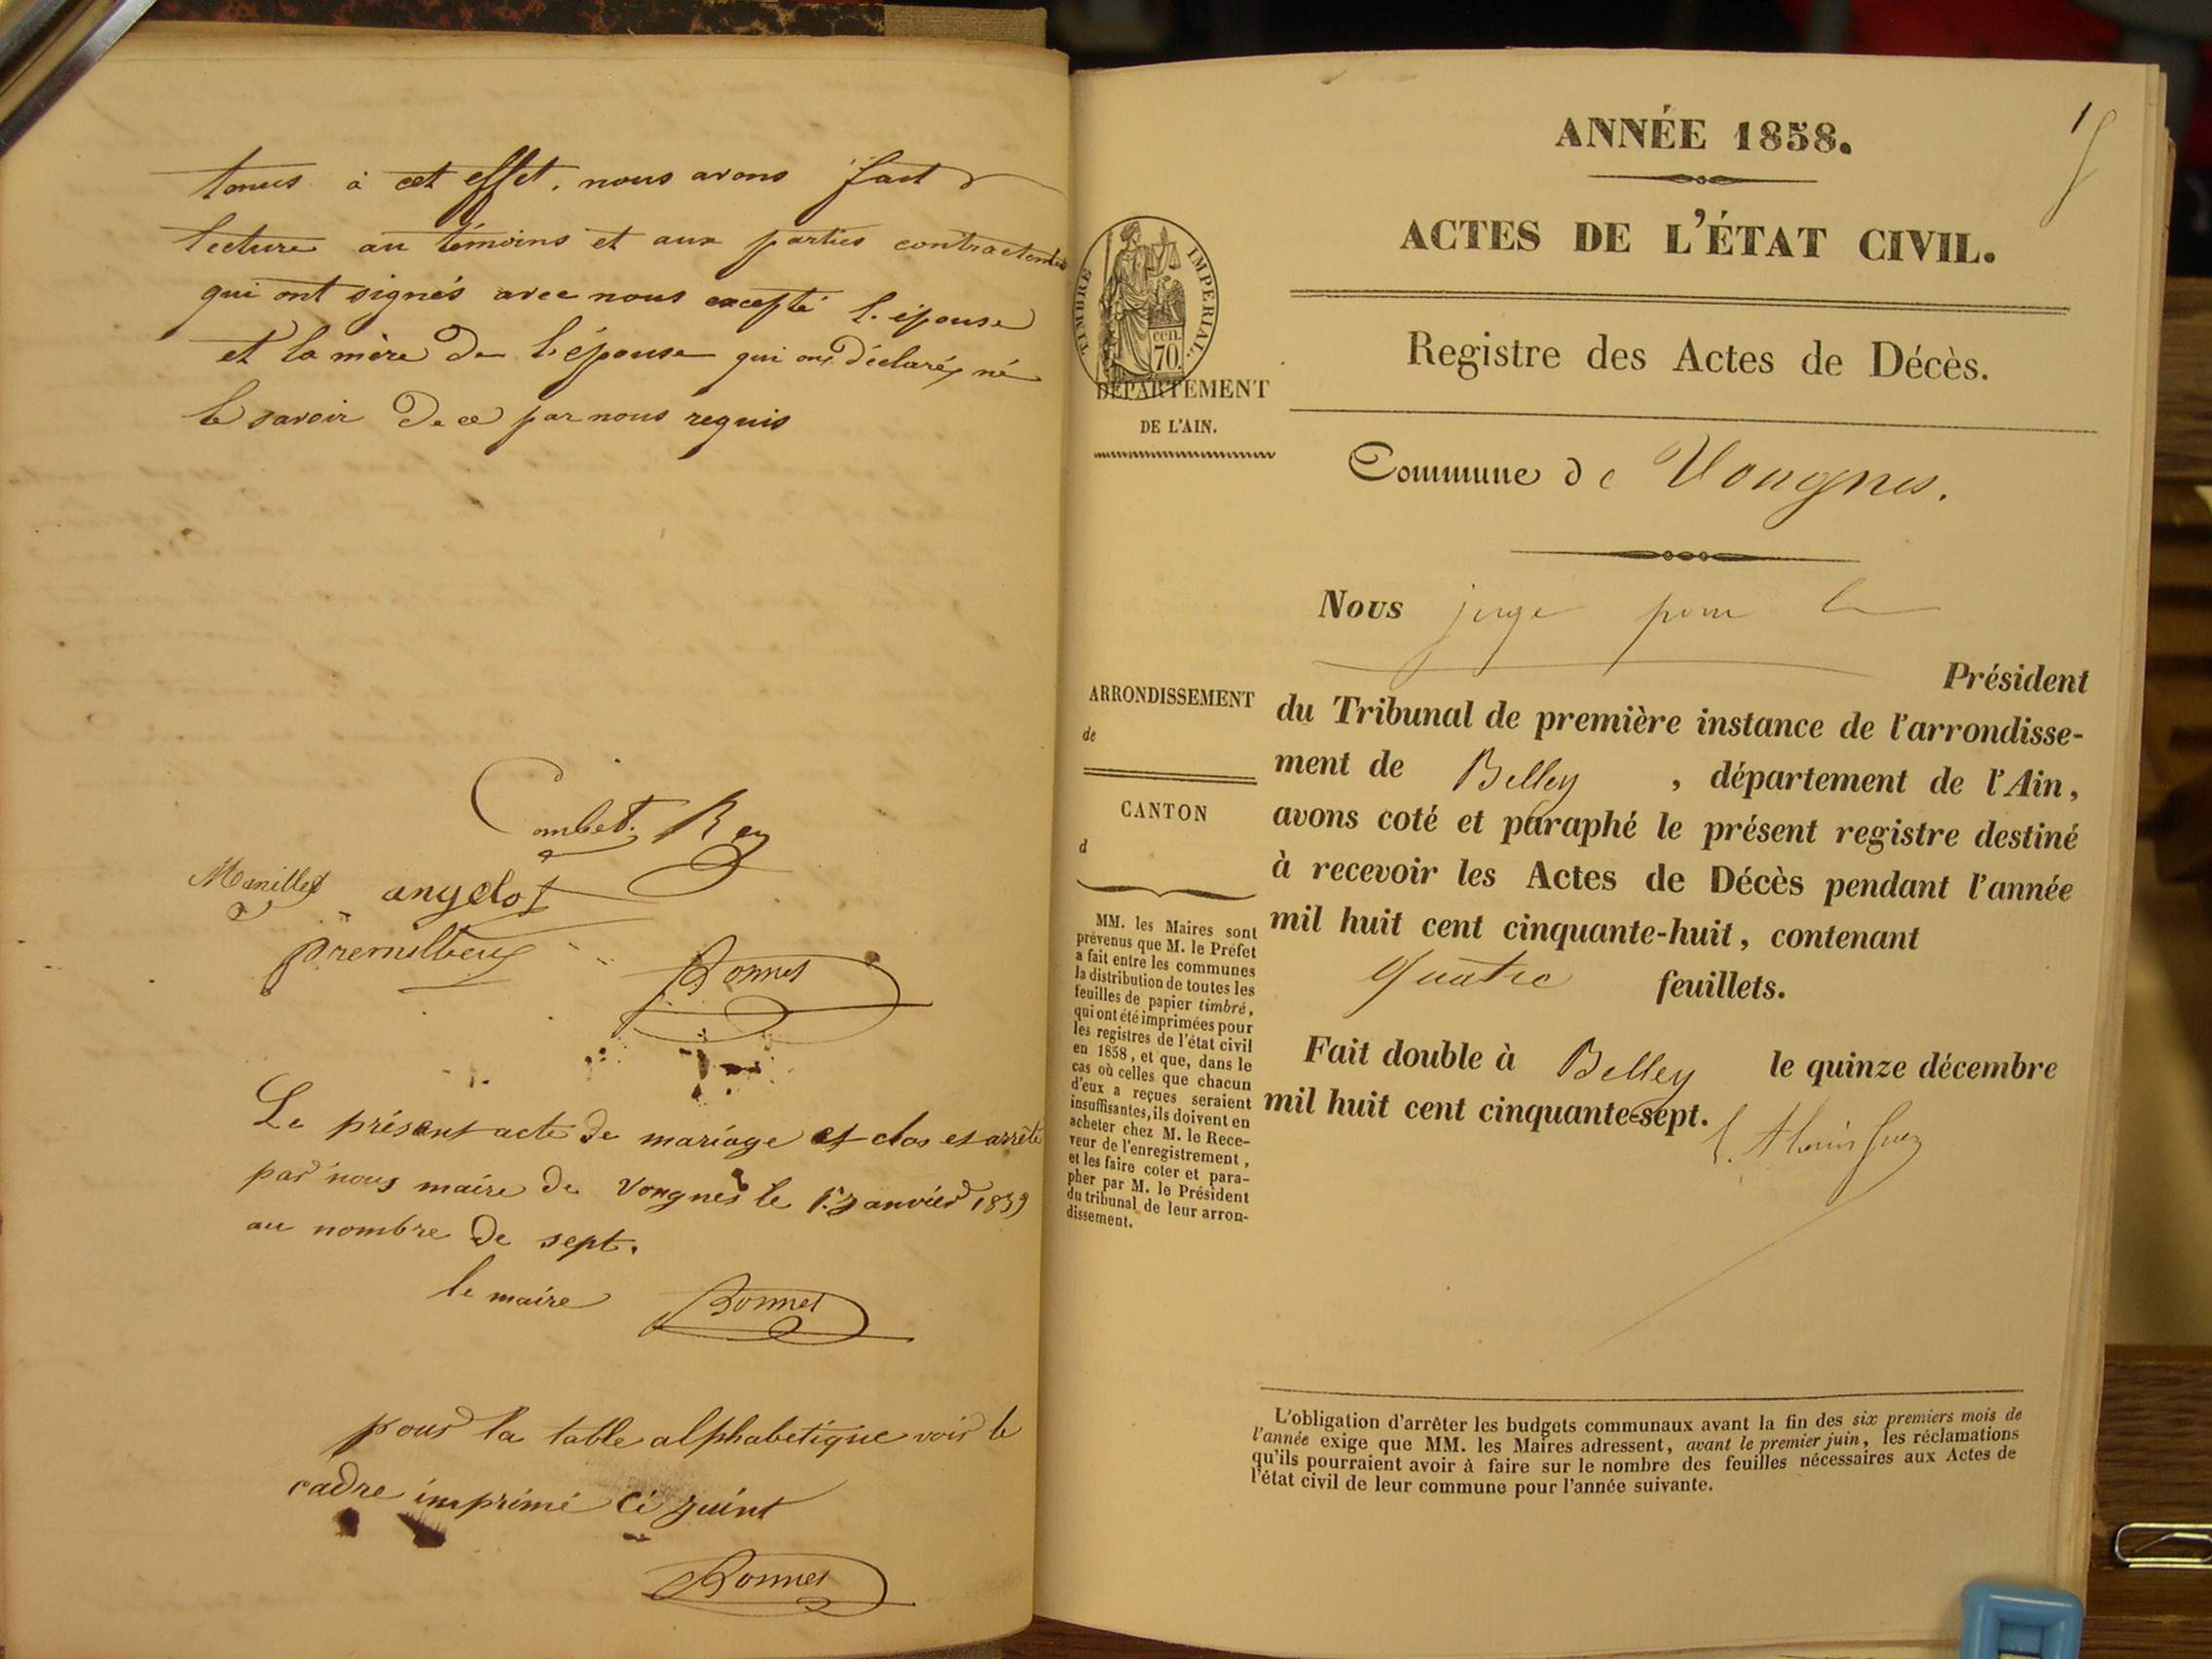 tenus à cet effet. nous avons fait
lecture au témoins et aux parties contractentes
qui ont signés avec nous excepté l'épouse
et la mère de l'épouse qui ont déclarés né
le savoir de ce par nous requis
Combet. Rey
Manillet angelot
premillieux
Bonnet
Le présent acte de mariage est clos et arrêté
par nous maire de Vongnes le 1er Janvier 1859
au nombre de sept.
le maire Bonnet
pour la table alphabétique voir le
cadre imprimé ci joint
Bonnet
1
ANNÉE 1858.
ACTES DE L'ÉTAT CIVIL.
TIMBRE IMPERIAL.
cen.
70.
DÉPARTEMENT
DE L'AIN.
Registre des Actes de Décès.
Commune de Vongnes.
Nous juge pour le
Président
du Tribunal de première instance de l'arrondisse-
ment de Belley , département de l'Ain,
avons coté et paraphé le présent registre destiné
à recevoir les Actes de Décès pendant l'année
mil huit cent cinquante-huit, contenant
quatre feuillets.
Fait double à Belley le quinze décembre
mil huit cent cinquante-sept.
ARRONDISSEMENT
de
CANTON
d
MM. les Maires sont
prévenus que M. le Préfet
a fait entre les communes
la distribution de toutes les
feuilles de papier timbré,
qui ont été imprimées pour
les registres de l'état civil
en 1858, et que, dans le
cas où celles que chacun
d'eux a reçues seraient
insuffisantes, ils doivent en
acheter chez M. le Rece-
veur de l'enregistrement,
et les faire coter et para-
pher par M. le Président
du tribunal de leur arron-
dissement.
L'obligation d'arrêter les budgets communaux avant la fin des six premiers mois de
l'année exige que MM. les Maires adressent, avant le premier juin, les réclamations
qu'ils pourraient avoir à faire sur le nombre des feuilles nécessaires aux Actes de
l'état civil de leur commune pour l'année suivante.